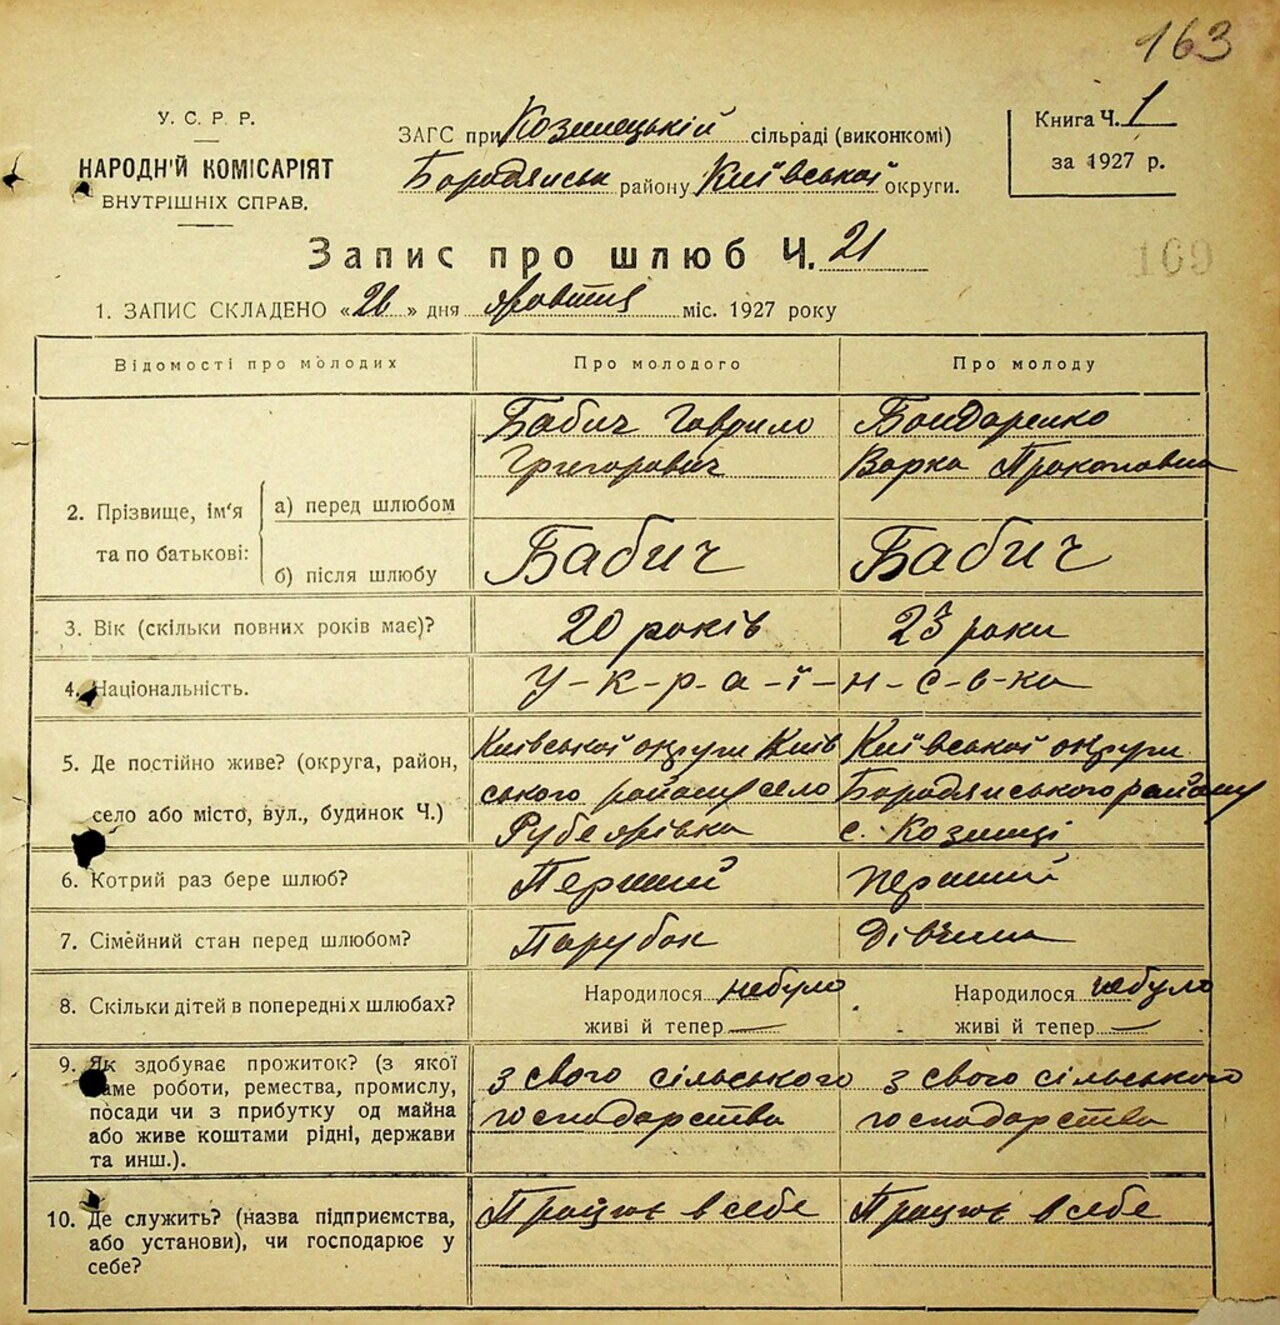 163
У. С. Р. Р.
НАРОДНІЙ КОМІСАРІЯТ
ВНУТРІШНІХ СПРАВ.
ЗАГС при Козинецькій сільраді (виконкомі)
Бородянськ району Київської округи.
Книга Ч. 1
за 1927 р.
Запис про шлюб Ч. 21
169
1. ЗАПИС СКЛАДЕНО «26» дня жовтня міс. 1927 року
Відомості про молодих Про молодого Про молоду
2. Прізвище, ім'я та по батькові:
а) перед шлюбом
Бабич Гаврило
Григорович
Бондаренко
Варка Прокоповна
б) після шлюбу
Бабич
Бабич
3. Вік (скільки повних років має)?
20 років
23 роки
4. Національність.
У-к-р-а-ї-н-с-ь-ка
5. Де постійно живе? (округа, район,
село або місто, вул., будинок Ч.)
Київської округи Київ
ського району село
Київської округи
Бородянського району
с. Козинці
6. Котрий раз бере шлюб?
Перший
перший
7. Сімейний стан перед шлюбом?
Парубок
Дівчина
8. Скільки дітей в попередніх шлюбах?
Народилося небуло
живі й тепер —
Народилося небуло
живі й тепер —
9. Як здобуває прожиток? (з якої
саме роботи, ремества, промислу,
посади чи з прибутку од майна
або живе коштами рідні, держави
та инш.).
з свого сільського
господарства
з свого сільського
господарства
10. Де служить? (назва підприємства,
або установи), чи господарює у
себе?
Працює в себе
Працює в себе